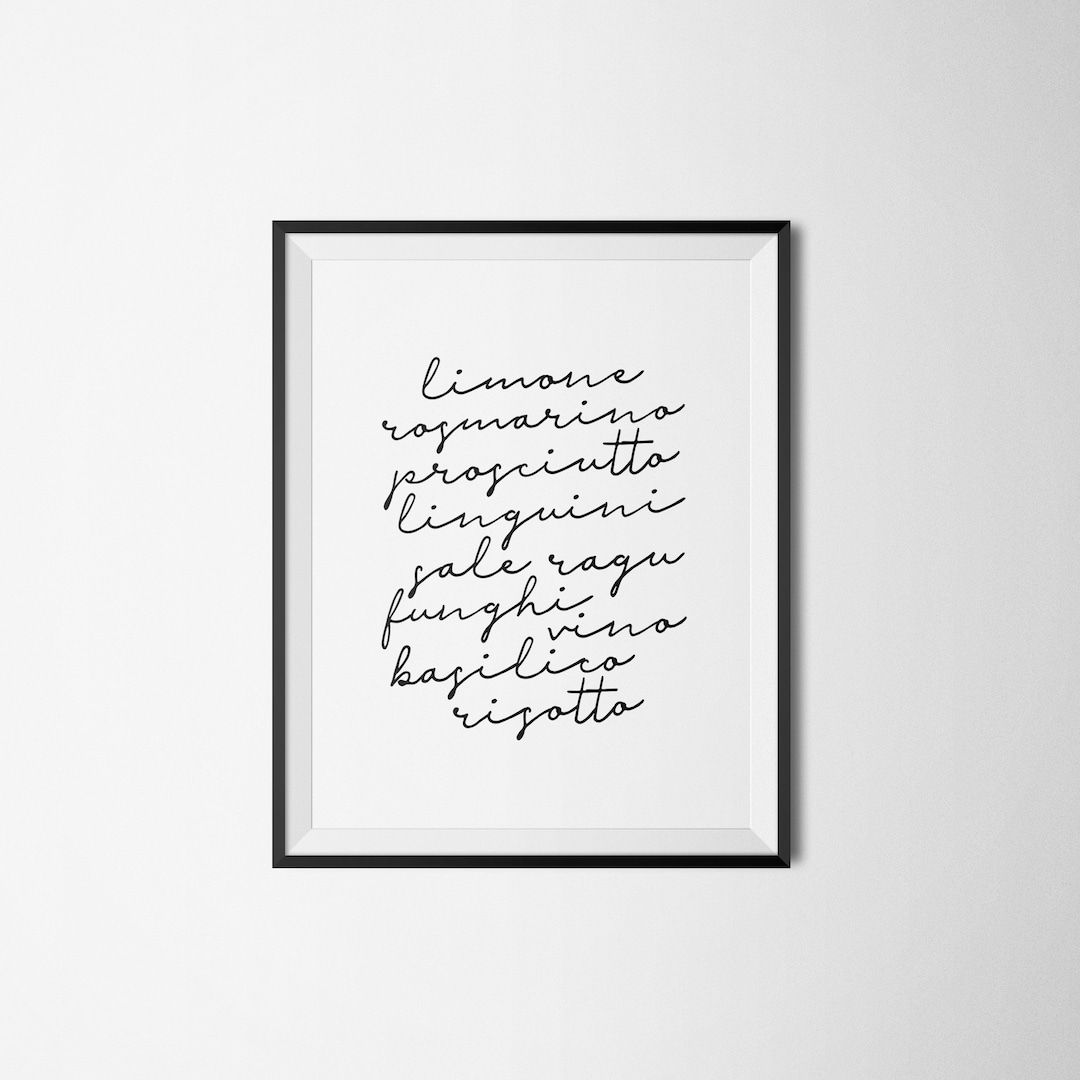 limone
rosmarino
prosciutto
linguini
sale ragu
funghi
vino
basilico
risotto